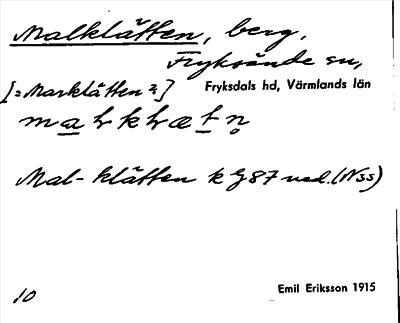 Malklätten, berg,
Fryksände sn,
[=Marklätten?] Fryksdals hd, Värmlands län
Mal-klätten k G87 ned. (Nss)
10 Emil Eriksson 1915